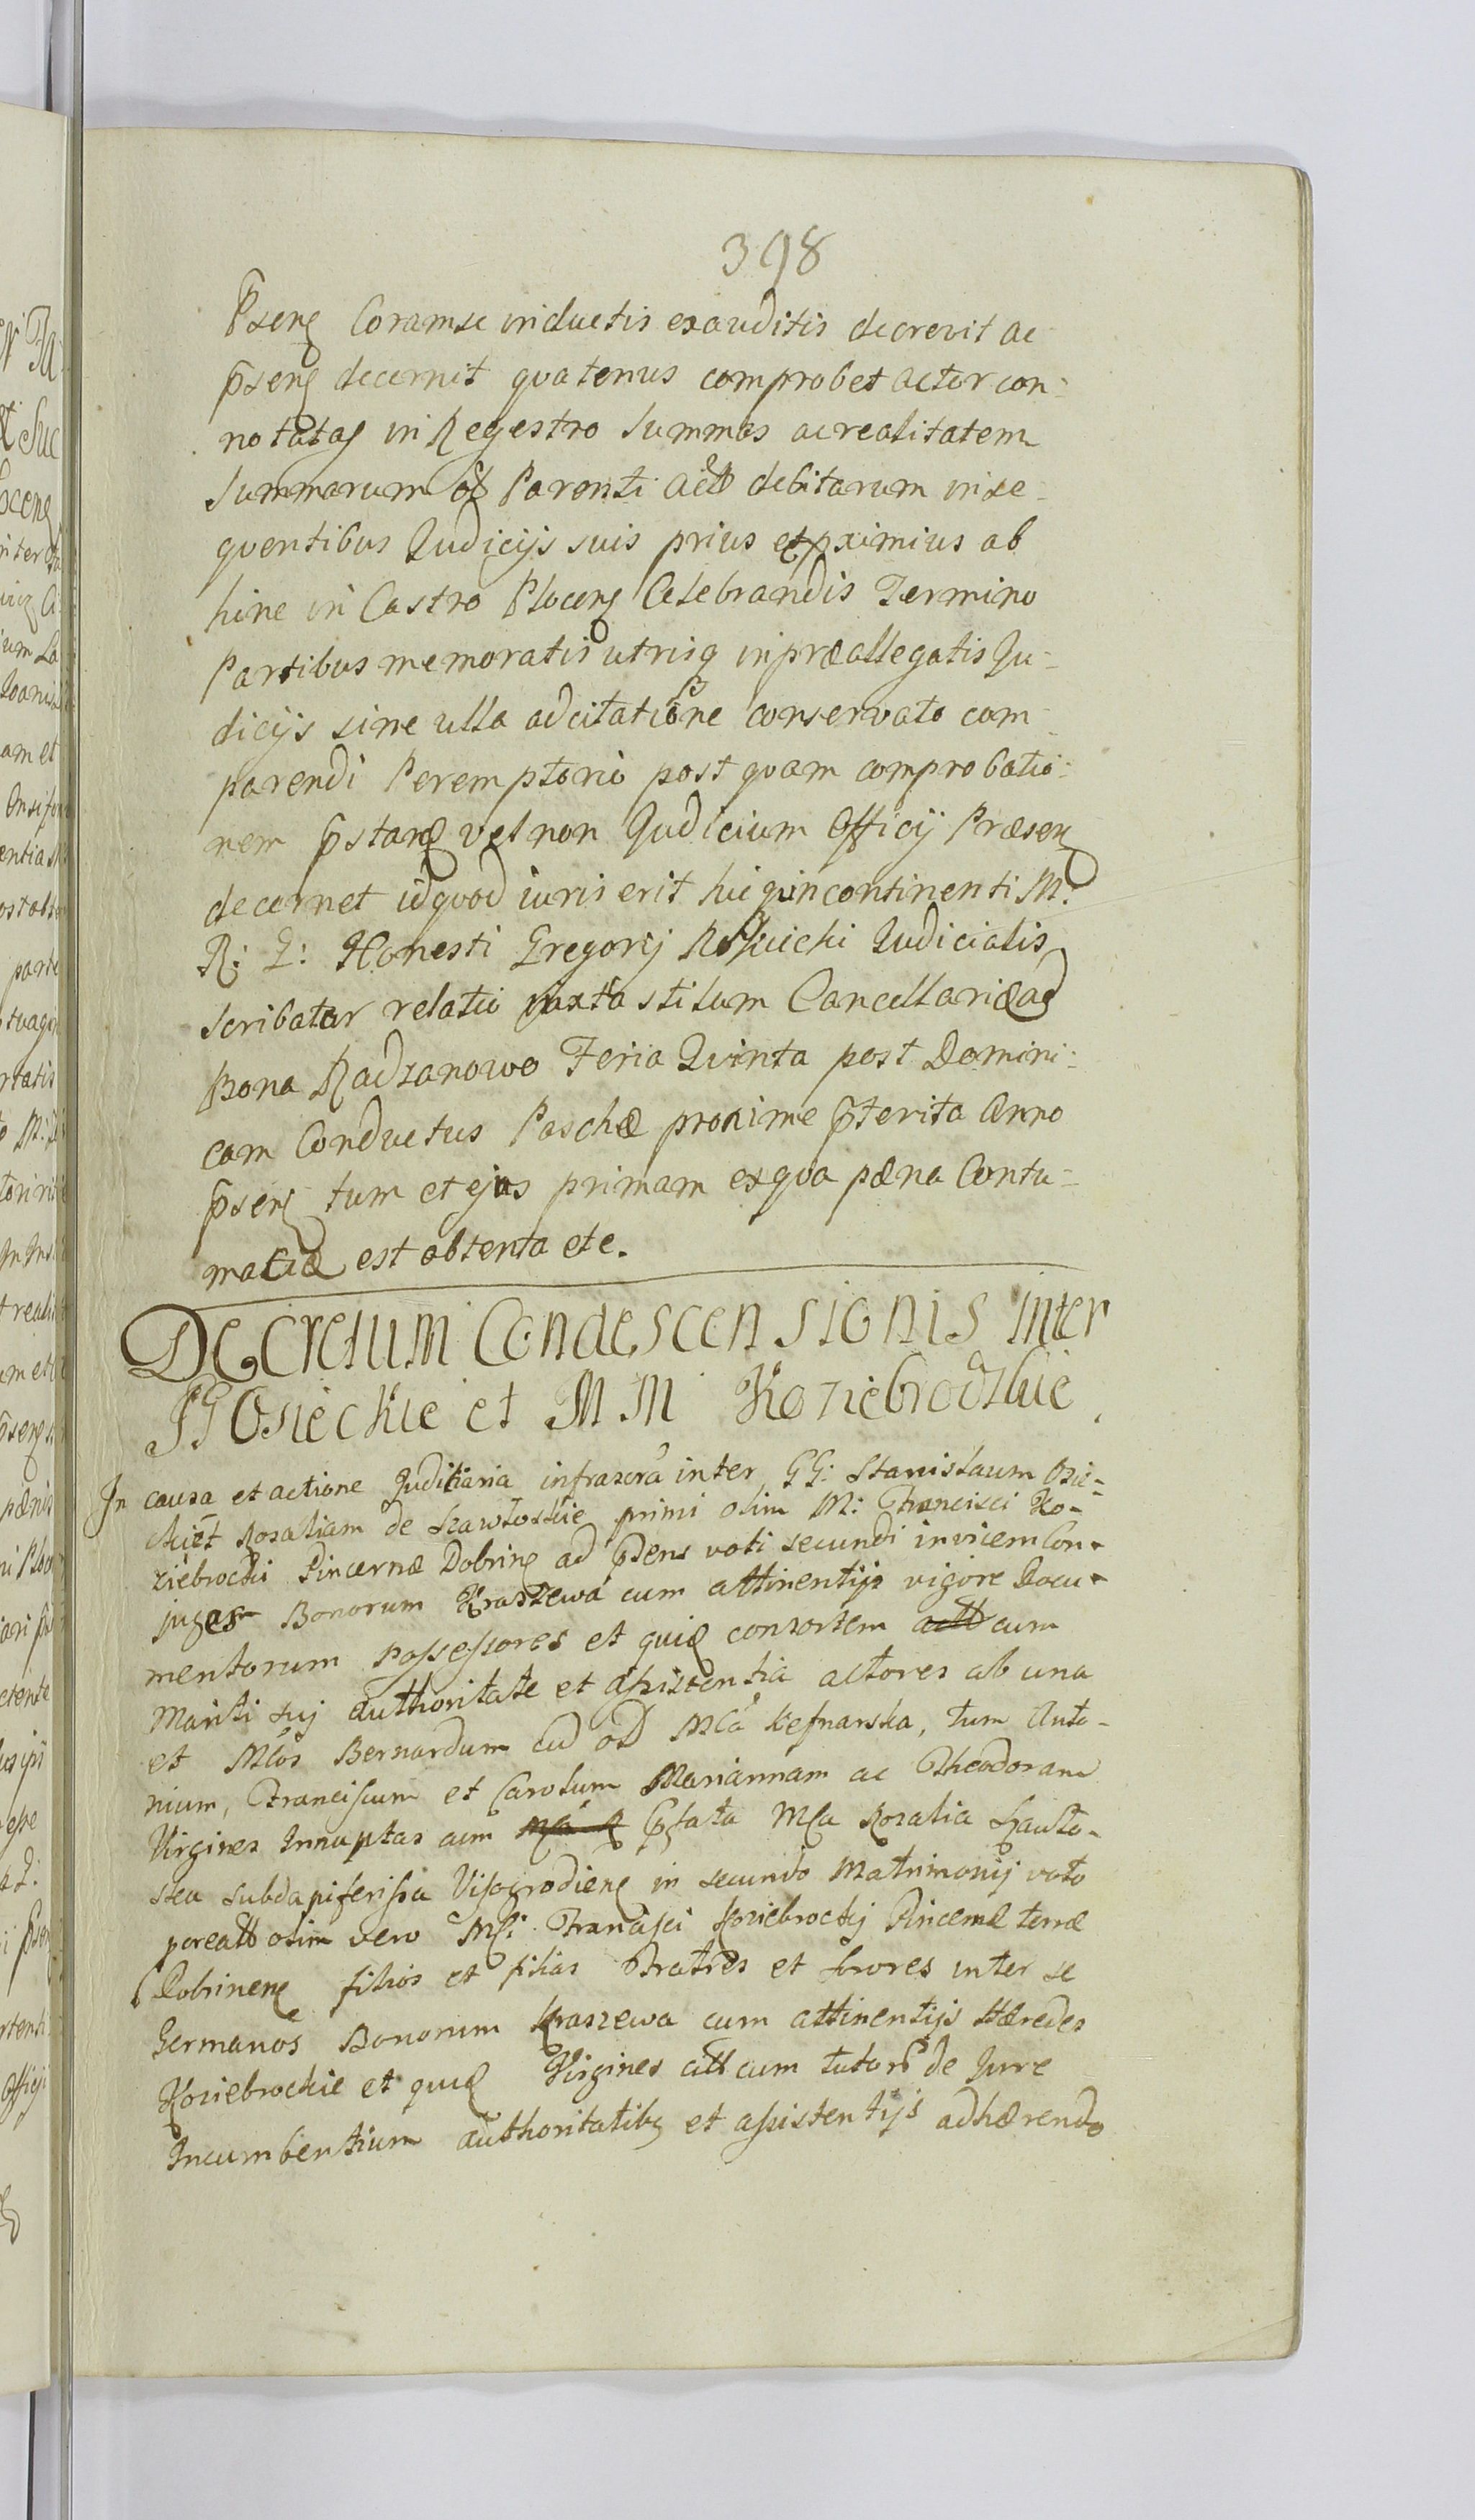 398
Psenς Coramse inductis exauditis decrevit ac
p̄senς decernit quatenus comprobet actor con-
notatas in Regestro Summas ac realitatem
Summarum Parenti debitarum in se-
quentibus Judicijs suis prius et pximius ab
hinc in Castro Plocenς Celebrandis Termino
Partibus memoratis utrisq in præallegatis Ju-
dicijs sine ulla adcitatione conservato com-
parendi Peremptorio post quam comprobatio-
nem p̄stanς vel non Judicium Officij Præsenς
decernet id quod iuris erit huiq incontinenti M:
R: G: Honesti Gregorij Judicialis
Scribatur relatio juxta stilum Cancellariæ ad
Bona Radzanowo Feria Quinta post Domini-
cam Conductus Paschæ proxime p̄terita Anno
p̄senς tum et ejus primam ex qva pæna Contu-
maciæ est obtenta etc.
Decretum Condescensionis Inter
GG Osieckie et MM Koziebrodzkie
In causa et actione Judiciaria infrascrā inter GG: Stanislaum Osie-
ckiet Rosaliam de primi olim M: Francisci Ko-
ziebrocki Pincernæ Dobrinς ad p̄dens voti secundi invicem Con-
juges Bonorum Kraszewa cum attinentijs vigore Docu-
mentorum possessores et quiς consortem cum
Mariti sui authoritate et assistentia actores ab una
et Mcos Bernardum cud od Mcā Kesnarska, tum Anto-
nium, Franciscum et Carolum Mariannam ac Theodoram
Virgines Innuptas cum p̄fata Mca Rosalia
Subdapiferissa Visogrodienς in secundo Matrimonij voto
olim vero Mci Francisci Koziebrockij Pincernæ terræ
Dobrinenς filios et filias Fratres et Sorores inter se
Germanos Bonorum Kraszewa cum attinentijs Hæredes
Koziebrockie et quiς Virgines cum tutorū de Jure
Incumbentium authoritatibς et assistentijs adhærendo